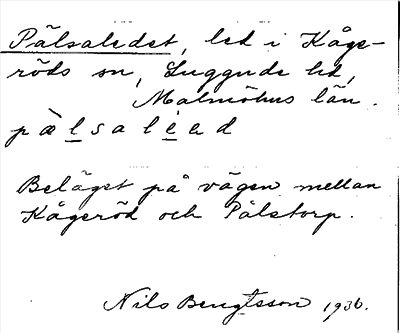 Pålsaledet, led i Kåge-
röds sn, Luggude hd,
Malmöhus län.
pæ̀lsalèad
Beläget på vägen mellan
Kågeröd och Pålstorp.
Nils Bengtsson 1936.